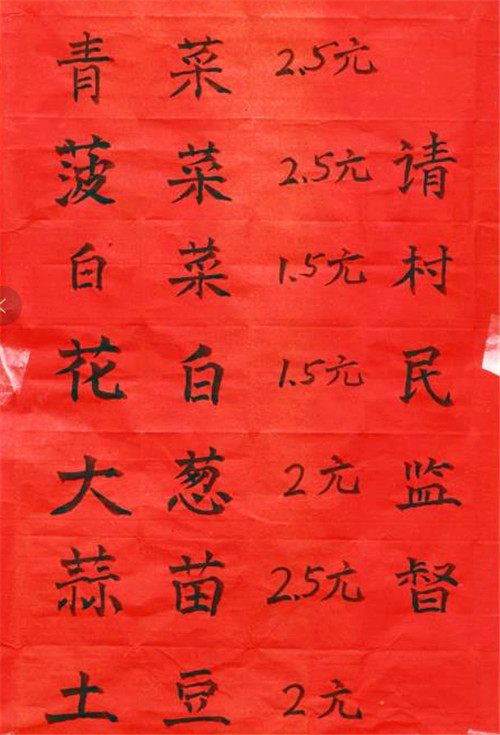 青菜 2.5元
菠菜 2.5元
白菜 1.5元
花白 1.5元
大葱 2元
蒜苗 2.5元
土豆 2元
请村民监督